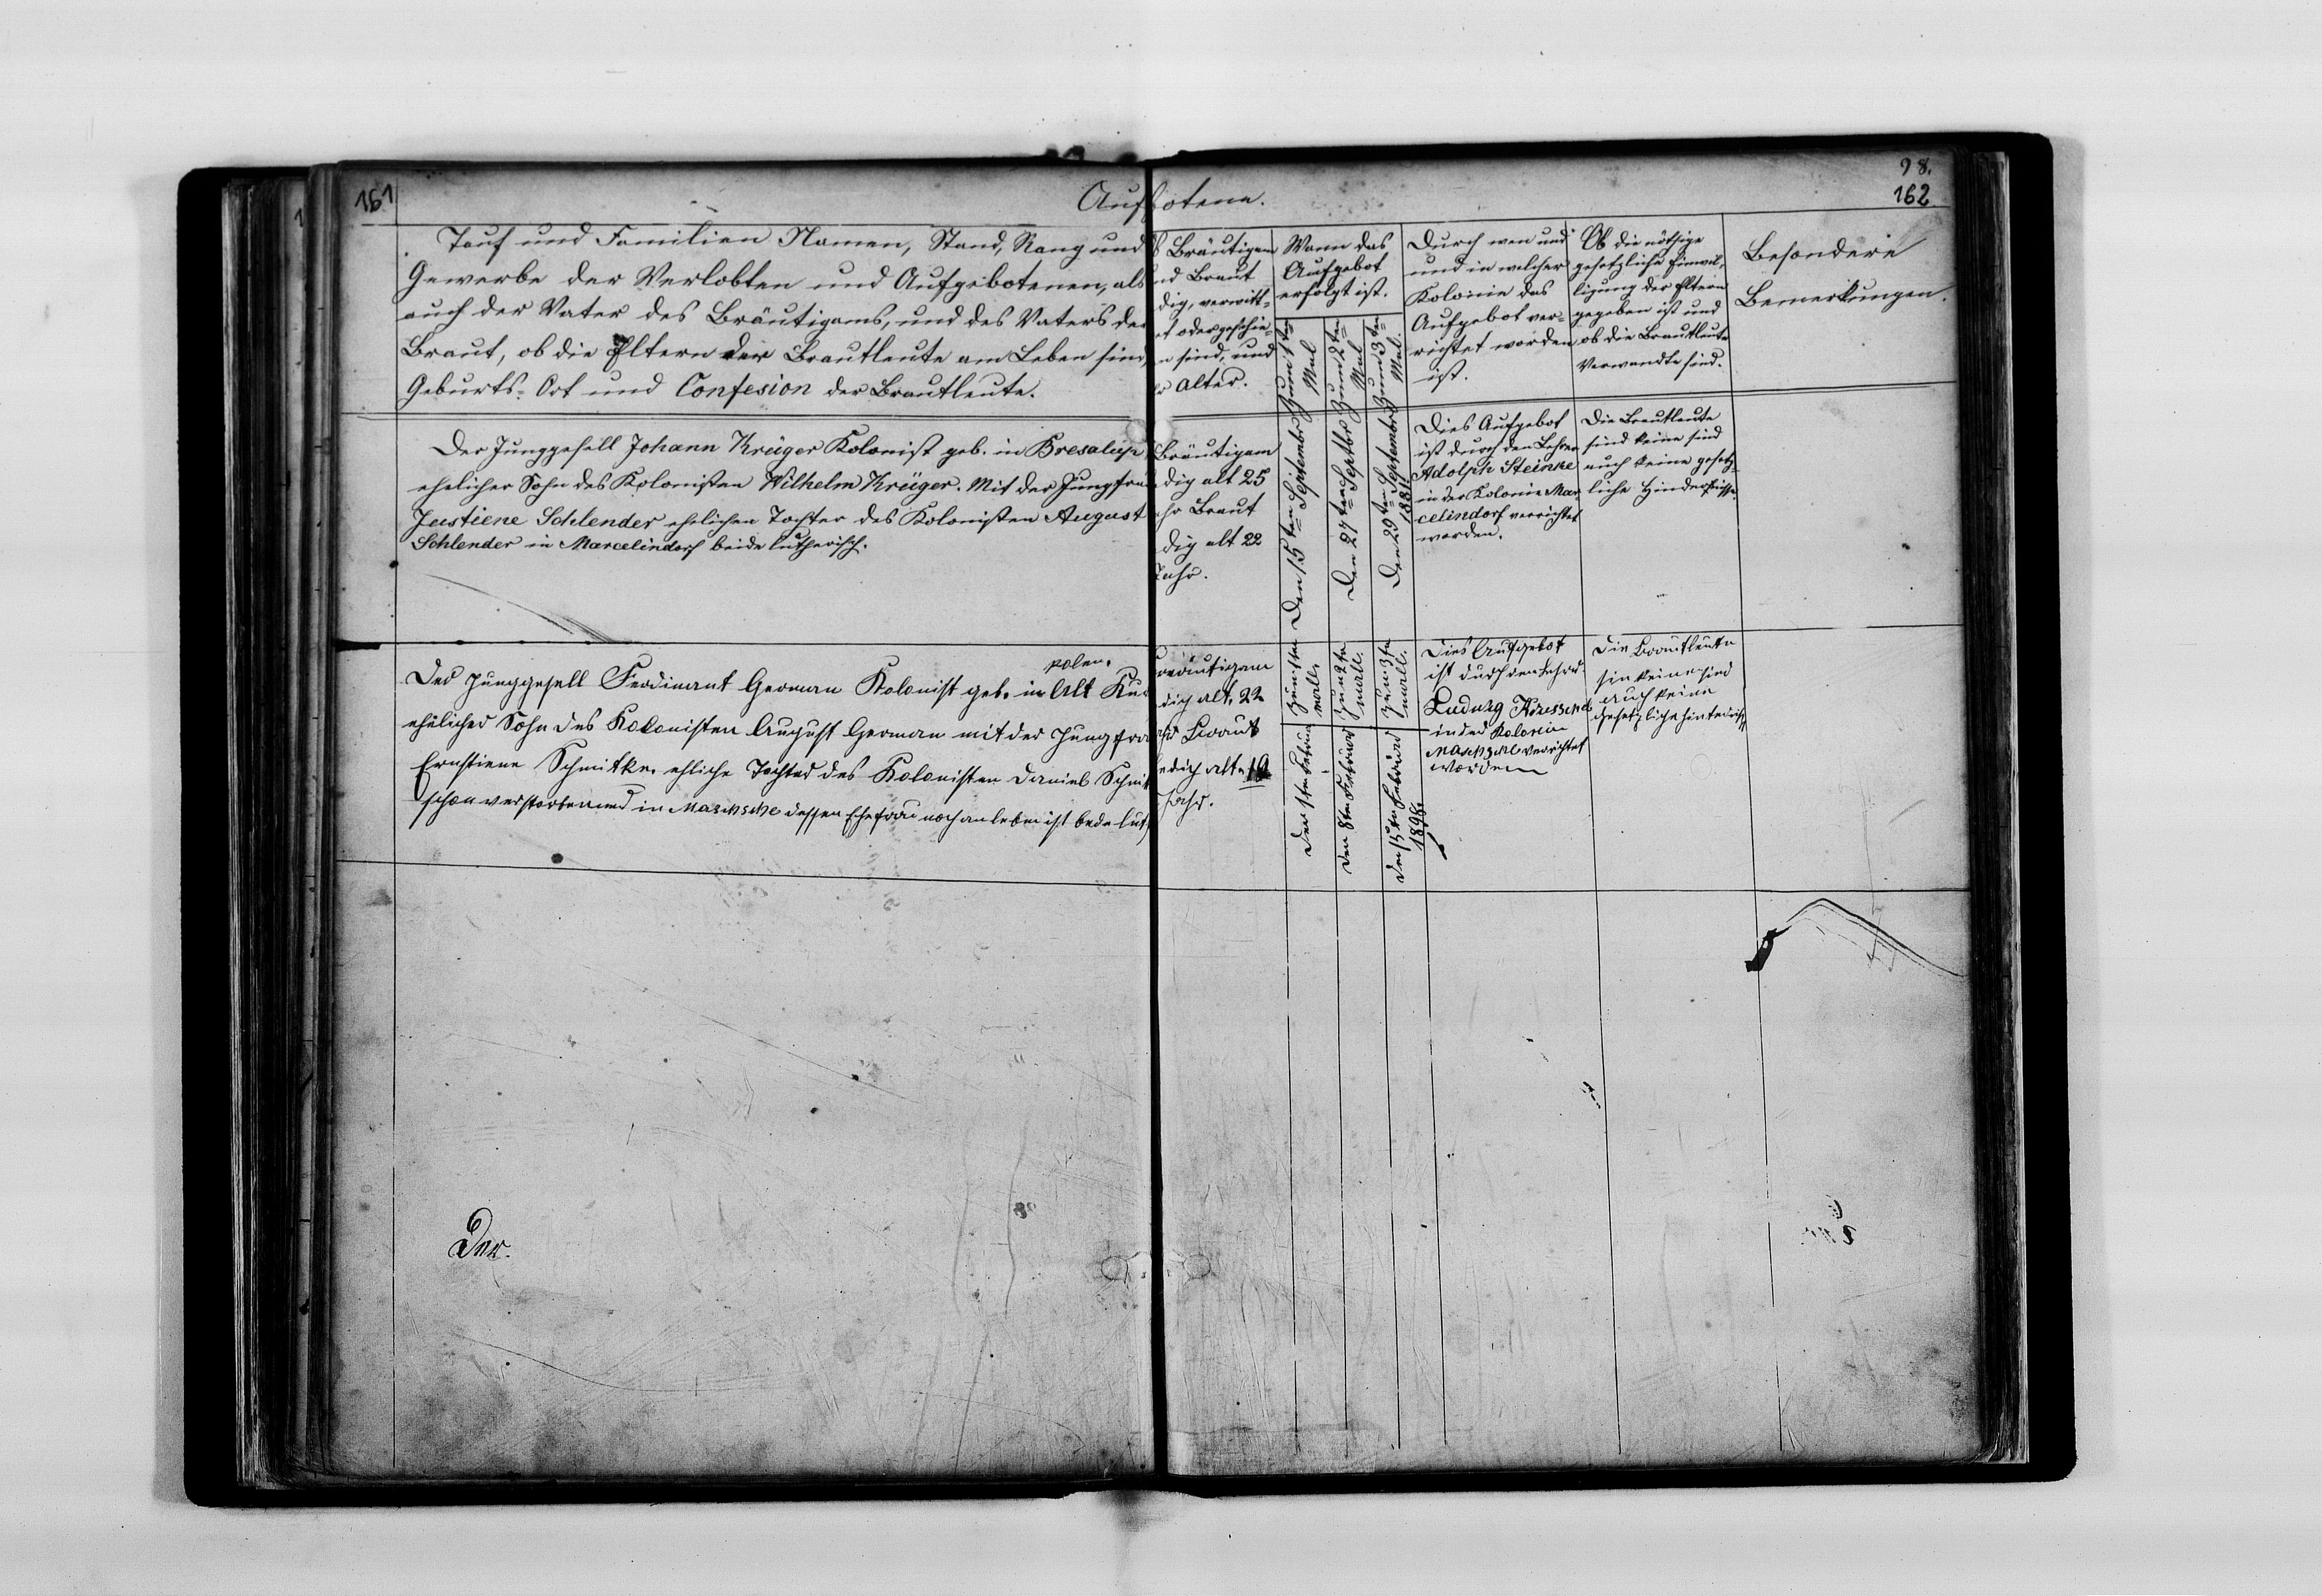 161
98.
162
Aufbotene.
Tauf und Familien Namen, Stand, Rang und
Gewerbe der Verlobten und Aufgebotenen, als
auch der Vater des Bräutigams, und des Vaters der
Braut, ob die Eltern der Brautleute am Leben sind,
Geburts-Ort und Confesion der Brautleute.
Bräutigam
nd Braut
dig, verwitt-
et oder geschie-
n sind, und
Alter.
Wann das
Aufgebot
erfolgt ist.
Zum 1ten
Mal
Zum 2ten
Mal
Zum 3ten
Mal.
Durch wen und
und in welcher
Kolonie das
Aufgebot ver-
richtet worden
ist.
Ob die nöthige
gesetzliche Einwil-
ligung der Eltern
gegeben ist und
ob die Brautleute
Verwandte sind.
Besondere
Bemerkungen.
Der Junggesell Johann Krüger Kolonist geb. in
ehelicher Sohn des Kolonisten Wilhelm Krüger. Mit der Jungfrau
Justiene Schlender ehelichen Tochter des Kolonisten August
Schlender in Marcelindorf beide lutherisch.
Bräutigam
dig alt 25
hr Braut
dig alt 22
Jahr.
Den 15ten September
Den 27ten Septbr
Den 29ten September
1881
Dies Aufgebot
ist durch den Lehrer
Adolph Steinke
in der Kolonie Mar
celindorf verrichtet
worden.
Die Brautleute
sind keine sind
auch keine gesetz-
liche Hindernisse.
polen.
Der Junggesell Ferdinant German Kolonist geb. in Alt
ehelicher Sohn des Kolonisten August German mit der Jungfrau
Ernstiene Schmitke. ehliche Tochter des Kolonisten Daniel Schmit
schon verstorben und in dessen Ehefrau noch an leben ist bede lut
räutigam
dig alt, 22
hr Braut
edig alt
Jahr.
zum 1ten
mall.
zum 2te
mall.
zum 3te
mall.
Den 1ten Februar
Den 8ten Februar
Den 15ten Februar
1898.
Dies Aufgebot
ist durch den Lehrer
Ludwig
in der Kolonie
verrichtet
worden
Die Brautleute
sin keine sind
auch keine
gesetzliche hinternisse
Der.